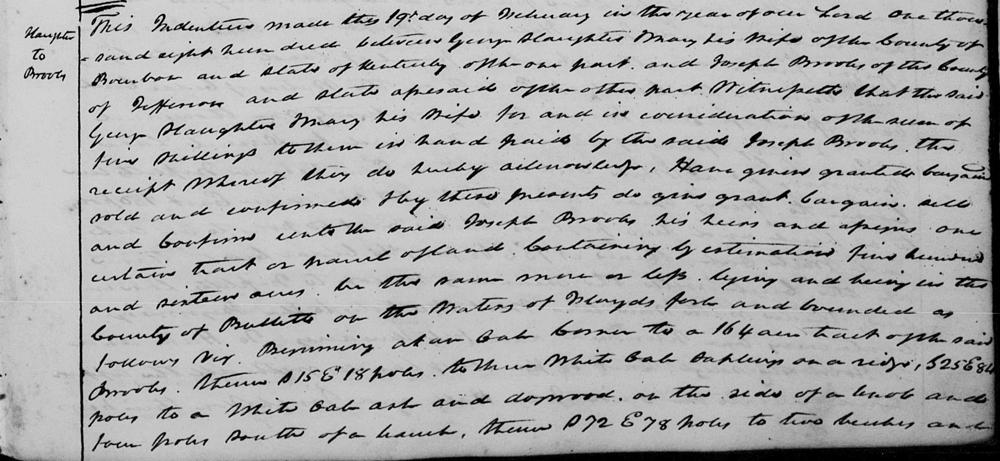 Slaughter
to
Brooks
This Indenture made the 19th day of February in the year of our Lord one thou-
sand eight hundred between George Slaughter & Mary his Wife of the County of
Bourbon and State of Kentucky of the one part. and Joseph Brooks of the County
of Jefferson and State aforesaid of the other part Witnesseth that the said
George Slaughter & Mary his Wife for and in consideration of the sum of
five Shillings to them in hand paid by the said Joseph Brooks, the
receipt Whereof they do hereby acknowledge, Have given granted bargain
sold and confirmed & by these presents do give grant. bargain. sell
and Confirm unto the said Joseph Brooks his heirs and assigns one
certain tract or parcel of land Containing by estimation five hundred
and sixteen acres. be the same more or less lying and being in the
County of Bullitt on the Waters of Floyds fork and bounded as
follows Viz. Beginning at an Oak Corner to a 164 acre tract of the said
Brooks. thence S15E 18 poles. to three White Oak Saplings on a ridge, S25E84
poles to a White Oak ash and dogwood. on the side of a knob and
four poles South of a branch, thence S72E78 poles to two beeches and